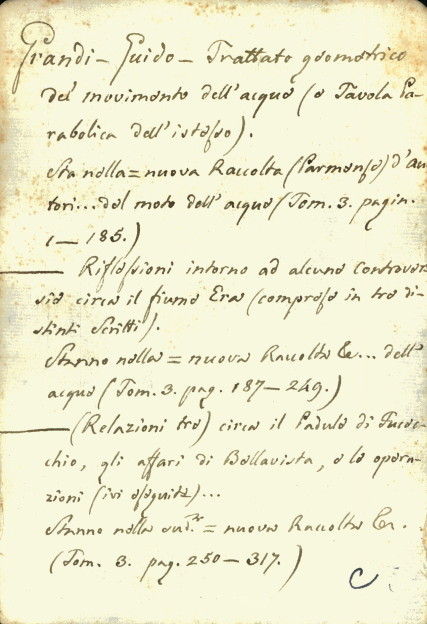 Grandi - Guido - Trattato geometrico
del movimento dell'acque (e Tavola Pa-
rabolica dell'istesso).
Sta nella = nuova Raccolta (Parmense) d'au
tori... del moto dell'acque (Tom. 3. pagin.
1 — 185.)
— Riflessioni intorno ad alcune controver
sie circa il fiume Era (comprese in tre di-
stinti Scritti).
Stanno nella = nuova Raccolta &c... dell'
acque (Tom. 3. pag. 187 — 249.)
— (Relazioni tre) circa il Padule di Fucec-
chio, gli affari di Bellavista, e le opera-
zioni (ivi eseguite)...
Stanno nella sud.ª = nuova Raccolta &c.
(Tom. 3. pag. 250 — 317.)
C